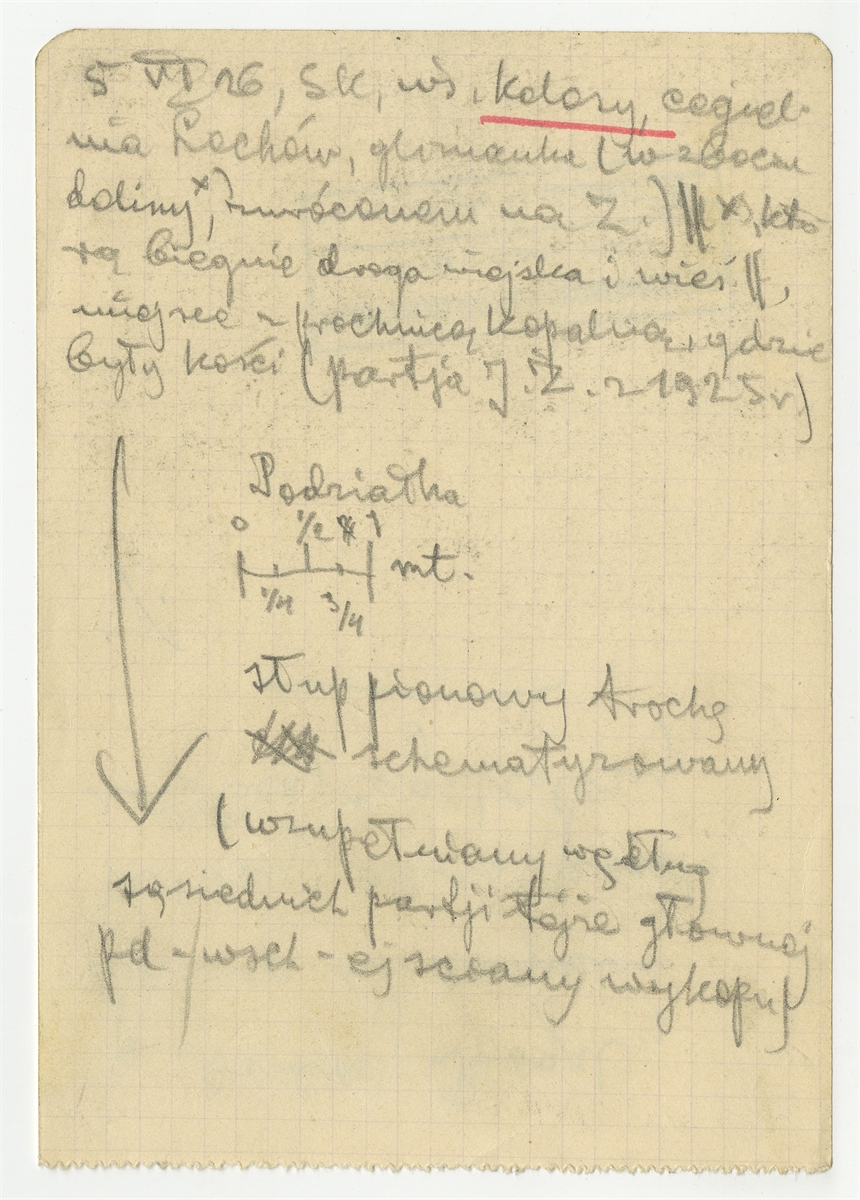 5 VI 26, SK, wś. Kolosy, cegiel-
nia Lochów, glinianka (w zboczu
doliny x), zwróconem na Z.) || x), któ-
rą biegnie droga wiejska i wieś ||,
miejsce z próchnicą kopalną, gdzie
były kości (partja J. Ż. z 1925 r.)
Podziałka
0 1/2 1
mt.
1/4 3/4
słup pionowy trochę
schematyzowany
(uzupełniany według
sąsiednich partji tejże głównej
pd-wsch-ej ściany wykopu)